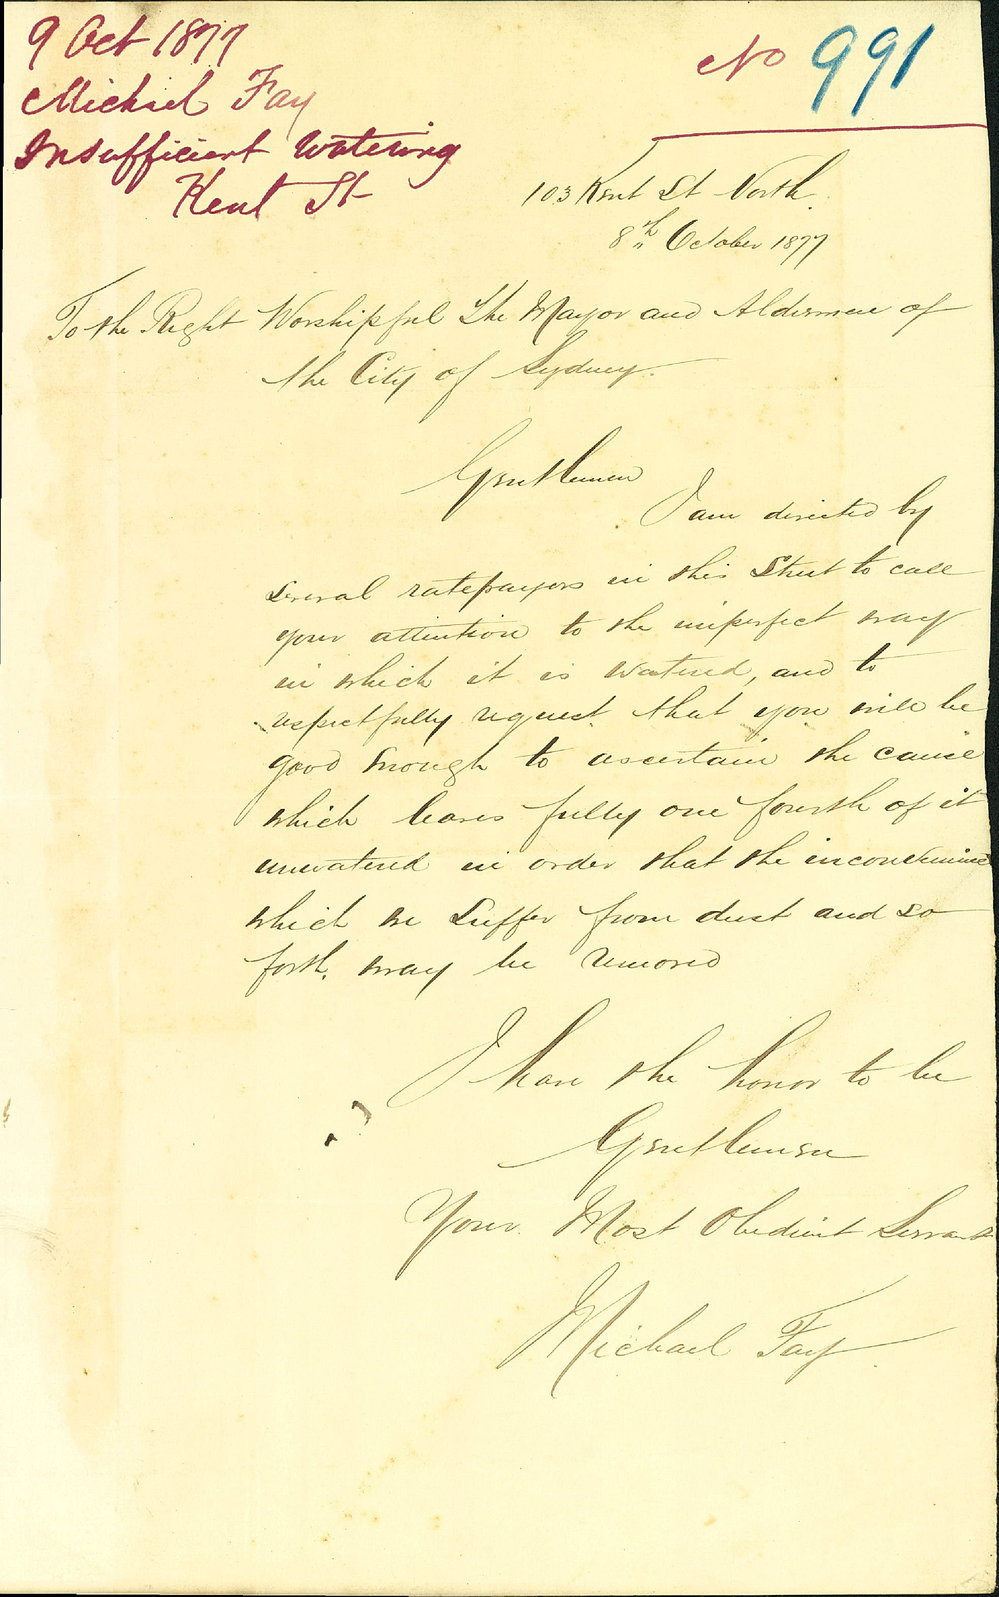 9 Oct 1877
Michael Fay
Insufficient Watering
Kent St
No 991
103 Kent St North
8th October 1877
To the Right Worshipful The Mayor and Aldermen of
the City of Sydney.
Gentlemen
I am directed by
several ratepayors in this Street to call
your attention to the imperfect way
in which it is watered, and to
respectfully request that you will be
good enough to ascertain the cause
which leaves fully one fourth of it
unwatered in order that the inconvenience
which we suffer from dust and so
forth. may be removed
I have the honor to be
Gentlemen
Your Most Obedient Servant
Michael Fay